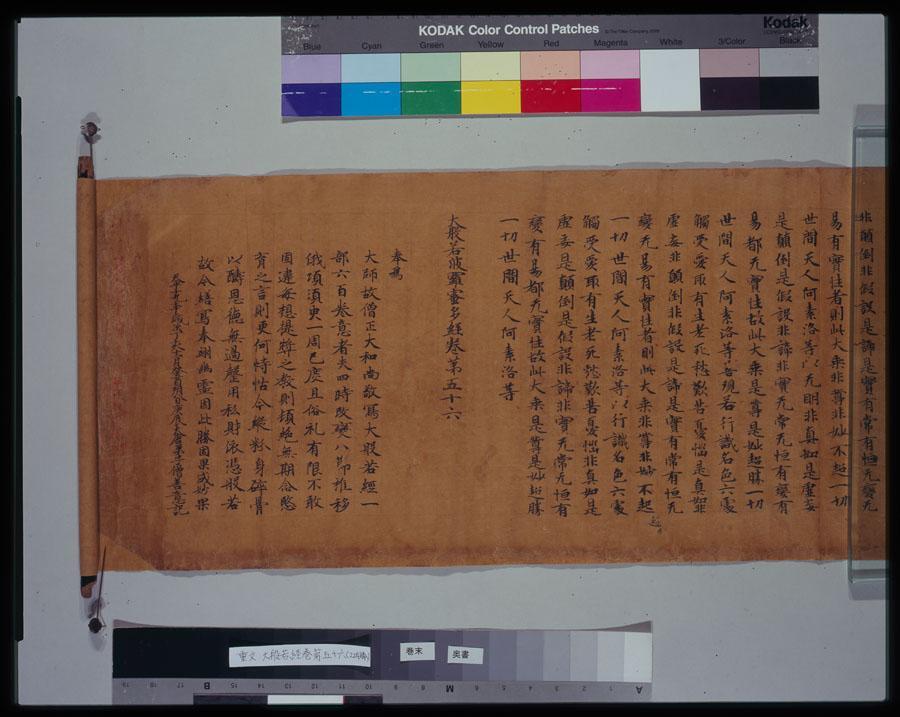 KODAK Color Control Patches
© The Tiffen Company, 2000
Kodak
LICENSED PRODUCT
Blue
Cyan
Green
Yellow
Red
Magenta
White
3/Color
Black
非顛倒非假設是諦是實有常有恒无變无
易有實性者則此大乘非尊非妙不超一切
世間天人阿素洛等以无明非真如是虛妄
是顛倒是假設非諦非實无常无恒有變有
易都无實性故此大乘是尊是妙超勝一切
世間天人阿素洛等善現若行識名色六處
觸受愛取有生老死愁歎苦憂惱是真如非
虛妄非顛倒非假設是諦是實有常有恒无
變无易有實性者則此大乘非尊非妙不超
一切世間天人阿素洛等以行識名色六處
觸受愛取有生老死愁歎苦憂惱非真如是
虛妄是顛倒是假設非諦非實无常无恒有
變有易都无實性故此大乘是尊是妙超勝
一切世間天人阿素洛等
大般若波羅蜜多經卷第五十六
奉為
大師故僧正大和尚敬寫大般若經一
部六百卷意者夫四時改變八節推移
俄頃須臾一周已度且俗礼有限不敢
固違每想提撕之教則頓絕無期念慜
育之言則更何恃怙今縱粉身碎骨
以酬恩德無過罄用私財依憑般若
故令繕寫奉翊幽靈因此勝因果成妙果
重文 大般若経巻第五十六
巻末
奥書
19 18 17 16 15 14 13 12 11 10 9 8 7 6 5 4 3 2 1
B
M
A